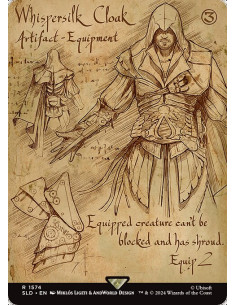 Whispersilk Cloak
3
Artifact - Equipment
Equipped creature can't be
blocked and has shroud.
Equip 2
R 1574
SLD • EN Miklós Ligeti & AndWorld Design
© Ubisoft
™ & © 2024 Wizards of the Coast